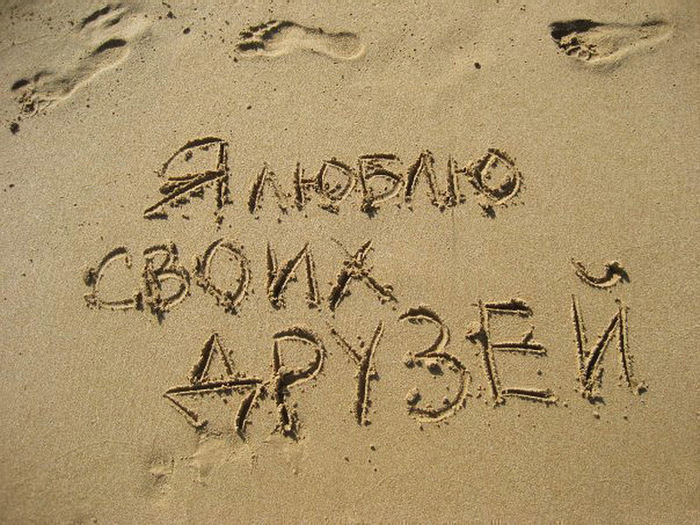 Я люблю
своих
ДРУЗЕЙ